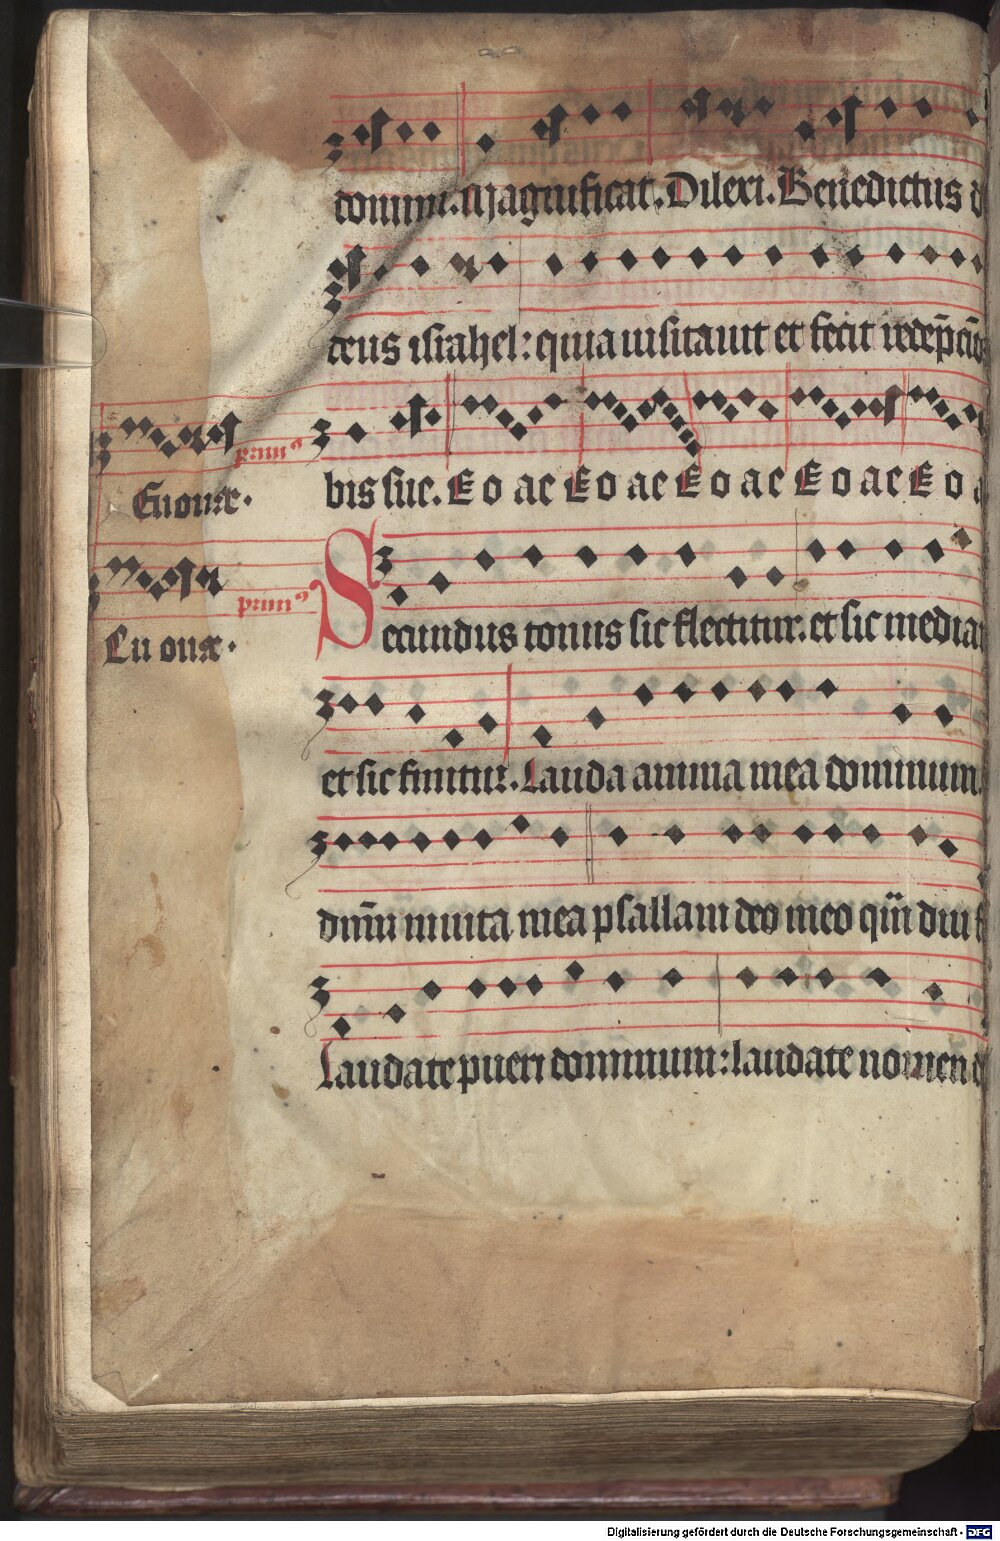 domini. Magnificat. Dilexi. Benedictus d
deus israhel: quia uisitauit et fecit redēpciō
bis sue. E o ae E o ae E o ae E o ae E o a
Euouae.
primꝰ
Secundus tonus sic flectitur. et sic media
Eu ouae.
primꝰ
et sic finitur. Lauda anima mea dominum.
dn̄m in uita mea psallam deo meo qm̄ diu f
Laudate pueri dominum: laudate nomen d
Digitalisierung gefördert durch die Deutsche Forschungsgemeinschaft - DFG